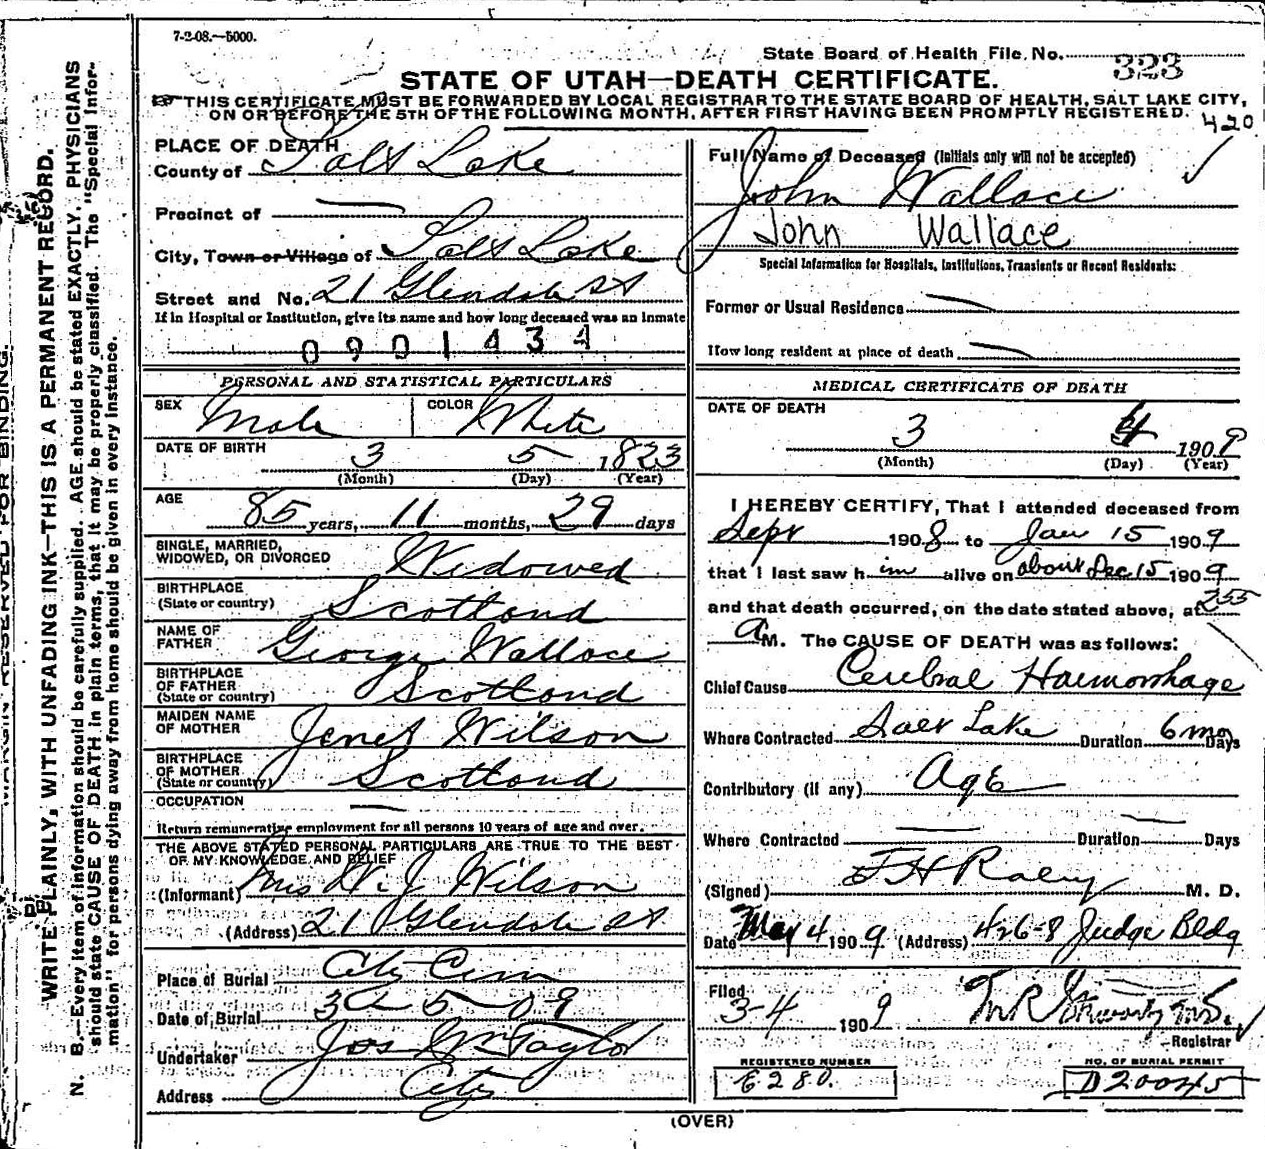 7-2-08.—5000.
State Board of Health File No. 323
STATE OF UTAH—DEATH CERTIFICATE.
THIS CERTIFICATE MUST BE FORWARDED BY LOCAL REGISTRAR TO THE STATE BOARD OF HEALTH, SALT LAKE CITY,
ON OR BEFORE THE 5TH OF THE FOLLOWING MONTH, AFTER FIRST HAVING BEEN PROMPTLY REGISTERED.
420
MARGIN RESERVED FOR BINDING.
WRITE PLAINLY, WITH UNFADING INK—THIS IS A PERMANENT RECORD.
N. B.—Every item of information should be carefully supplied. AGE should be stated EXACTLY. PHYSICIANS
should state CAUSE OF DEATH in plain terms, that it may be properly classified. The "Special Infor-
mation" for persons dying away from home should be given in every instance.
PLACE OF DEATH
County of Salt Lake
Precinct of —
City, Town or Village of Salt Lake
Street and No. 21 Glendale St
If in Hospital or Institution, give its name and how long deceased was an inmate
0901434
PERSONAL AND STATISTICAL PARTICULARS
SEX Male COLOR White
DATE OF BIRTH 3 5 1823
(Month) (Day) (Year)
AGE
85 years, 11 months, 29 days
SINGLE, MARRIED,
WIDOWED, OR DIVORCED Widowed
BIRTHPLACE
(State or country) Scotland
NAME OF
FATHER George Wallace
BIRTHPLACE
OF FATHER
(State or country) Scotland
MAIDEN NAME
OF MOTHER Janet Wilson
BIRTHPLACE
OF MOTHER
(State or country) Scotland
OCCUPATION —
Return remunerative employment for all persons 10 years of age and over.
THE ABOVE STATED PERSONAL PARTICULARS ARE TRUE TO THE BEST
OF MY KNOWLEDGE AND BELIEF
(Informant) Mrs W. J Wilson
(Address) 21 Glendale St
Place of Burial City Cem
Date of Burial 3 - 5 - 09
Undertaker Jos Wm Taylor
Address City
Full Name of Deceased (Initials only will not be accepted)
John Wallace
John Wallace
Special Information for Hospitals, Institutions, Transients or Recent Residents:
Former or Usual Residence —
How long resident at place of death —
MEDICAL CERTIFICATE OF DEATH
DATE OF DEATH
3 4 1909
(Month) (Day) (Year)
I HEREBY CERTIFY, That I attended deceased from
Sept 1908 to Jan 15 1909
that I last saw him alive on about Dec 15 1909
and that death occurred, on the date stated above, at 255
a M. The CAUSE OF DEATH was as follows:
Chief Cause Cerebral Haemorrhage
Where Contracted Salt Lake Duration 6 mo Days
Contributory (if any) Age
Where Contracted — Duration — Days
(Signed) M. D.
Date May 4 1909 (Address) 426-8 Judge Bldg
Filed
3-4 1909
Registrar
REGISTERED NUMBER
E280.
NO. OF BURIAL PERMIT
D20045
(OVER)